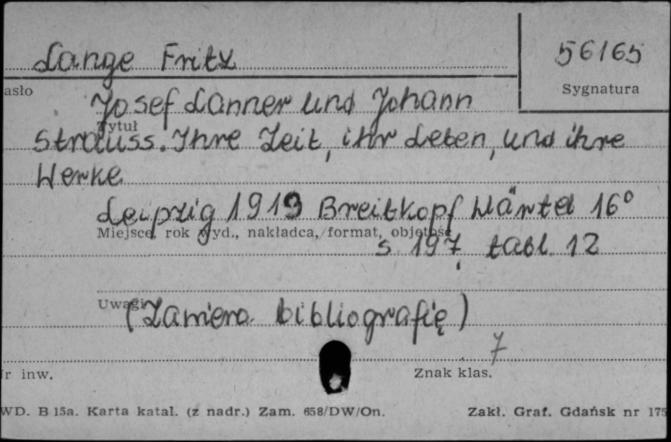 Lange Fritz
56165
asło
Sygnatura
Josef Lanner und Johann
Tytuł
Strauss. Ihre Zeit, ihr Leben, und ihre
Werke
Leipzig 1919 Breitkopf Härtel 16°
Miejsce, rok wyd., nakładca, format, objętość
s 197, tabl. 12
Uwagi
(Zawiera bibliografię)
7
r inw.
Znak klas.
WD. B 15a. Karta katal. (z nadr.) Zam. 658/DW/On.
Zakł. Graf. Gdańsk nr 175